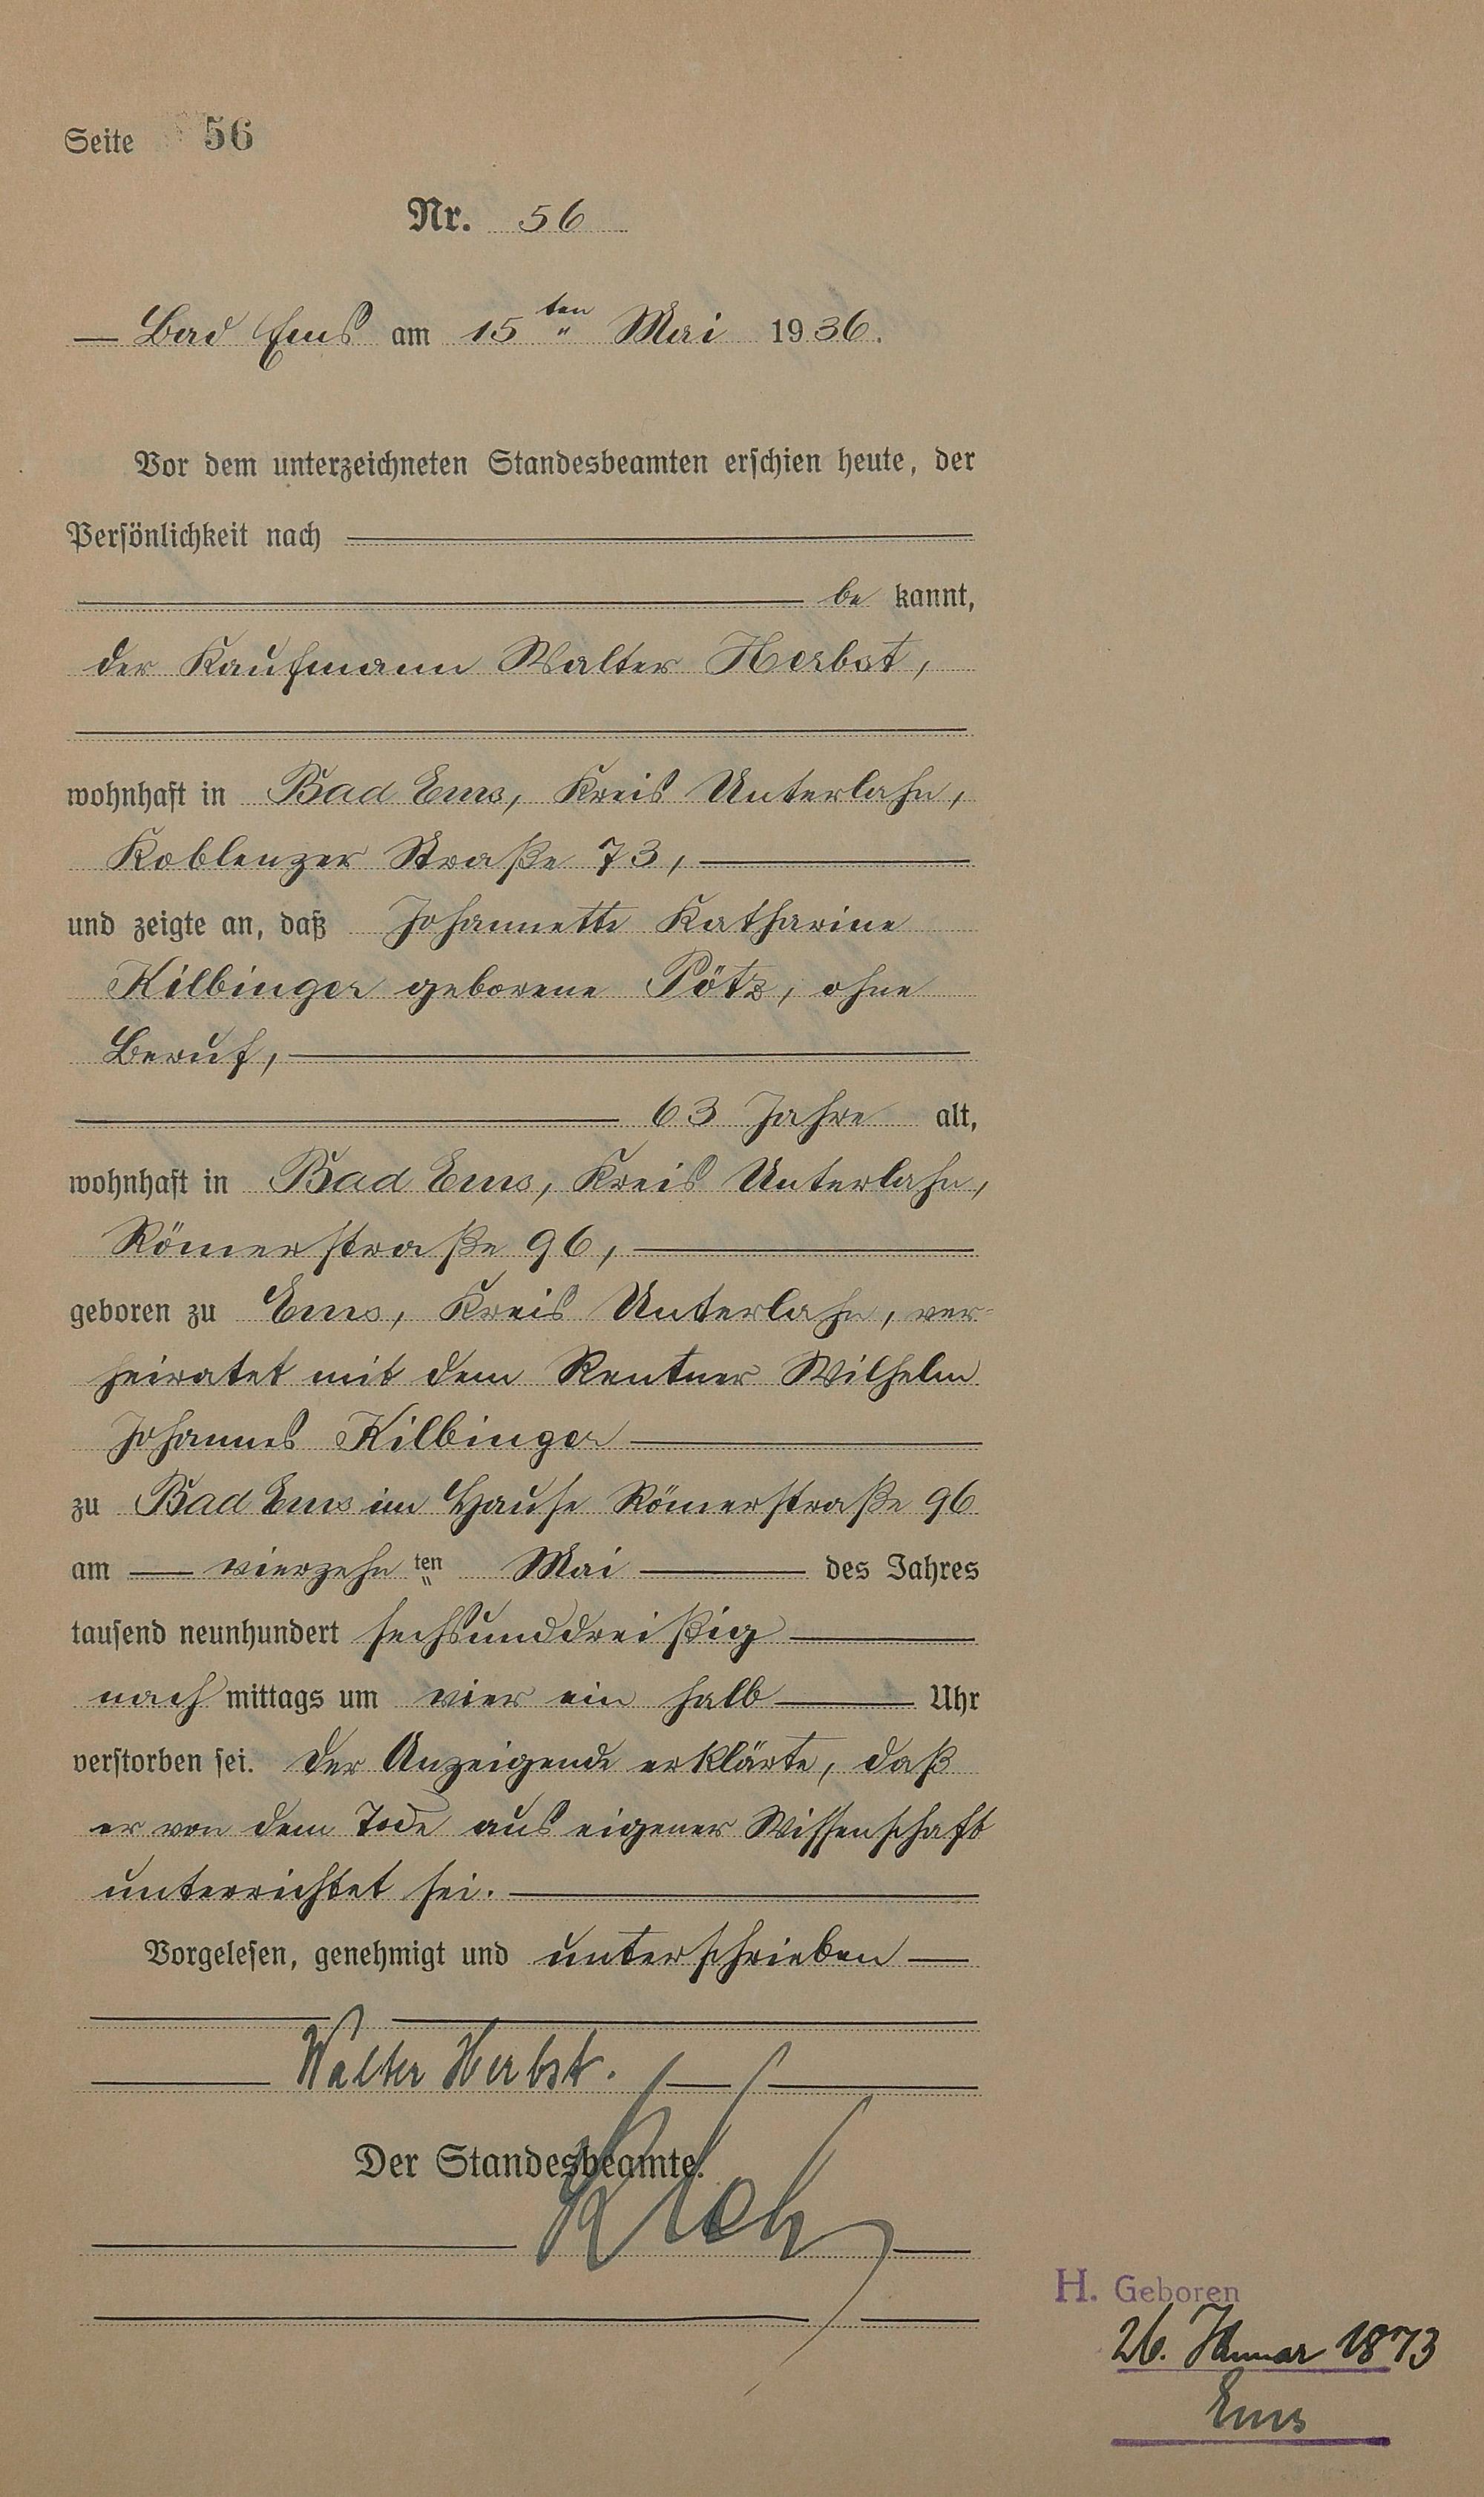 Seite 56
Nr. 56
Bad Ems am 15ten Mai 1936.
Vor dem unterzeichneten Standesbeamten erschien heute, der
Persönlichkeit nach
be kannt,
der Kaufmann Walter Herbst,
wohnhaft in Bad Ems, Kreis Unterlahn,
Koblenzer Straße 73,
und zeigte an, daß Johannette Katharine
Kilbinger geborene Pötz, ohne
Beruf,
63 Jahre alt,
wohnhaft in Bad Ems, Kreis Unterlahn,
Römerstraße 96,
geboren zu Ems, Kreis Unterlahn, ver-
heiratet mit dem Rentner Wilhelm
Johannes Kilbinger
zu Bad Ems im Hause Römerstraße 96
am vierzehn ten Mai des Jahres
tausend neunhundert sechsunddreißig
nach mittags um vier ein halb Uhr
verstorben sei. Der Anzeigende erklärte, daß
er von dem Tode aus eigener Wissenschaft
unterrichtet sei.
Vorgelesen, genehmigt und unterschrieben
Walter Herbst.
Der Standesbeamte.
H. Geboren
26. Januar 1873
Ems